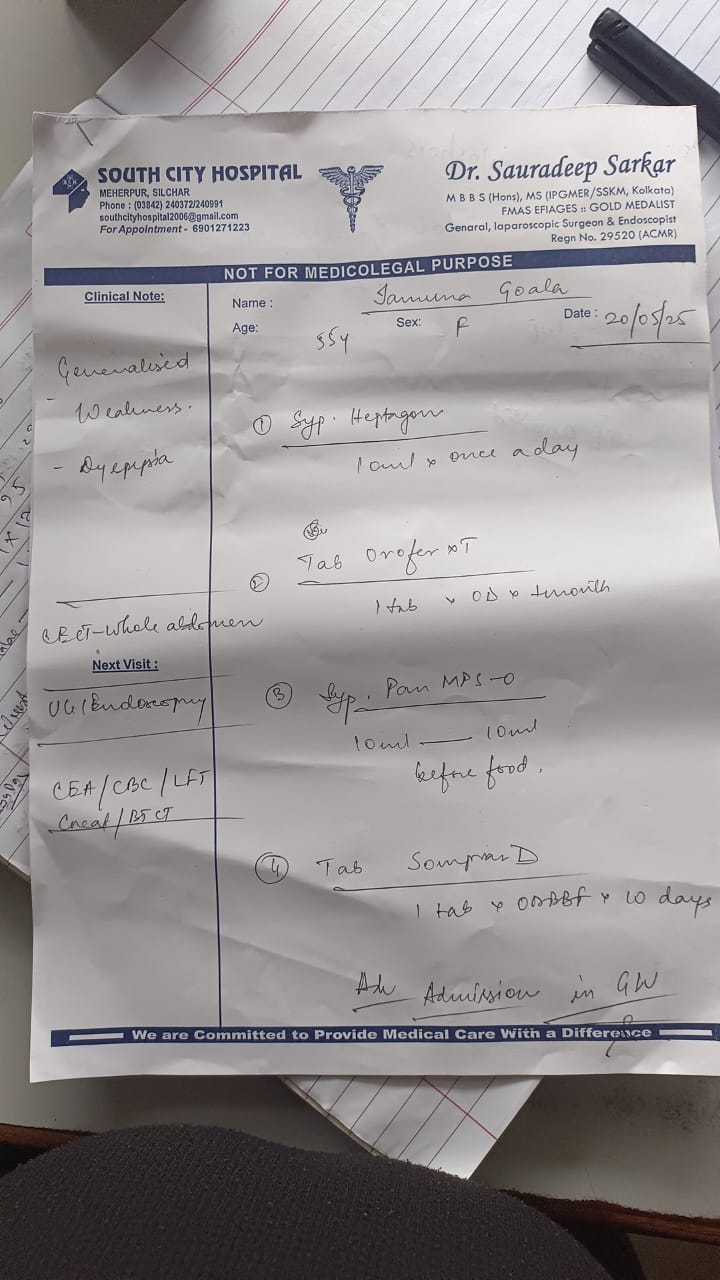 SOUTH CITY HOSPITAL
MEHERPUR, SILCHAR
Phone : (03842) 240372/240991
southcityhospital2006@gmail.com
For Appointment - 6901271223
Dr. Sauradeep Sarkar
M B B S (Hons), MS (IPGMER/SSKM, Kolkata)
FMAS EFIAGES :: GOLD MEDALIST
Genaral, laparoscopic Surgeon & Endoscopist
Regn No. 29520 (ACMR)
NOT FOR MEDICOLEGAL PURPOSE
Clinical Note:
Name : Jamuna Goala
Age: 55y Sex: F Date : 20/05/25
Generalised
- Weakness.
- Dyspepsia
CECT-Whole abdomen
Next Visit :
UGI Endoscopy
CEA/CBC/LFT
Creat/BT CT
① Syp. Heptagon
10ml x once a day
② Tab Orofer XT
1 tab x OD x 1 month
③ Syp. Pan MPS-O
10ml — 10ml
before food.
④ Tab Sompraz D
1 tab x ODBBF x 10 days
Adv Admission in GW
We are Committed to Provide Medical Care With a Difference